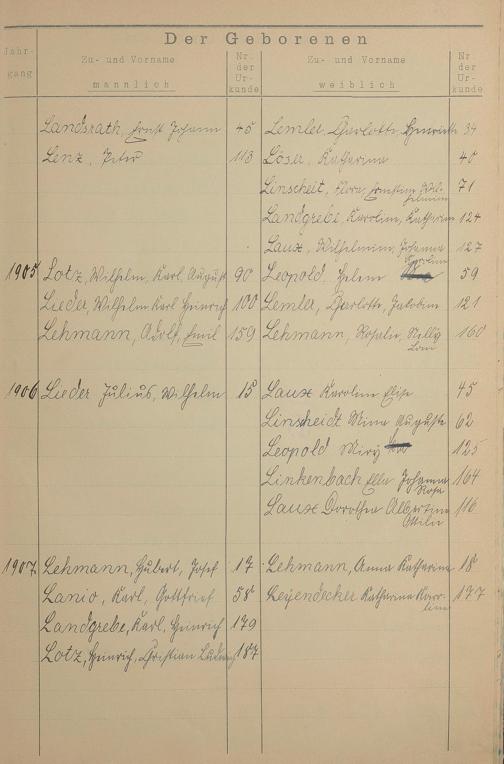 Der Geborenen
Jahr-
gang
Zu- und Vorname
männlich
Nr.
der
Ur-
kunde
Zu- und Vorname
weiblich
Nr.
der
Ur-
kunde
Landsrath, Ernst Johann 45 Lemler, Charlotte, Henriette 34
Lenz, Peter 113 Löser, Katharina 40
Linscheit, Flora, Ernstine, Wil- 71
helmine
Landgrebe, Karoline, Katharina 124
Laux, Wilhelmine, Johanna 127
Karoline
1905 Lotz, Wilhelm, Karl, August 90 Leopold, Helene 59
Lieder, Wilhelm Karl Heinrich 100 Lemler, Charlotte, Jakobine 121
Lehmann, Adolf, Emil 159 Lehmann, Rosalie, Nelly 160
1906 Lieder Julius, Wilhelm 15 Laux Karoline Elise 45
Linscheidt Mina Auguste 62
Leopold 125
Linkenbach Ella Johanna 164
Rosa
Laux Dorothea Albertine 116
Ottilie
1907. Lehmann, Hubert, Josef 17 Lehmann, Anna Katharina 18
Lanio, Karl, Gottfried 58 Leyendecker Katharina Karo- 177
line
Landgrebe, Karl, Heinrich 179
Lotz, Heinrich, Christian Ludwig 187